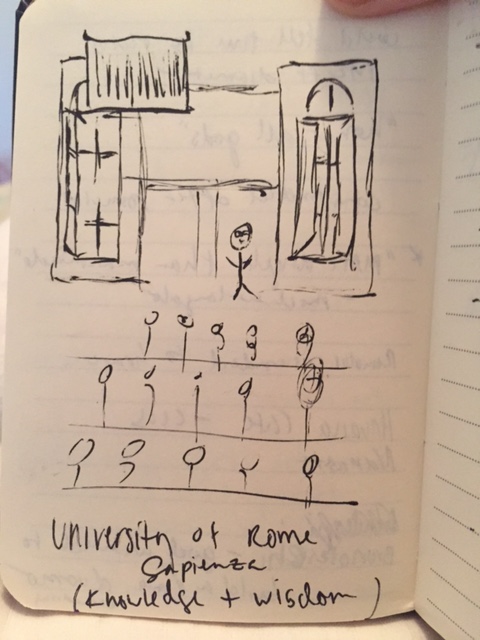 University of Rome
Sapienza
(Knowledge + wisdom)